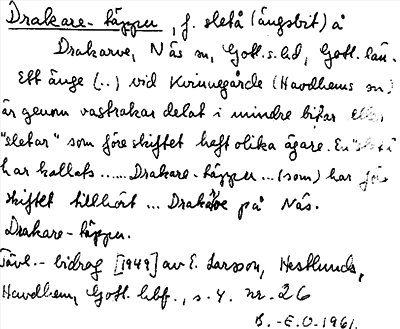 Drakare-täppu, f. sletå (ängsbit) å
Drakarve, Näs sn, Gotl. s. hd, Gotl. län.
Ett änge (..) vid Kvinnegårde (Havdhems sn)
är genom vastrakar delat i mindre bitar eller
"sletar" som före skiftet haft olika ägare. En "sletå"
har kallats ...... Drakare-täppu ... (som) har före
skiftet tillhört ... Drakarve på Näs.
Drakare-täppu.
Tävl.-bidrag [1949] av E. Larsson, Hestlunds,
Havdhem, Gotl. hbf., s. 4. nr. 26
B.-E.O. 1961.